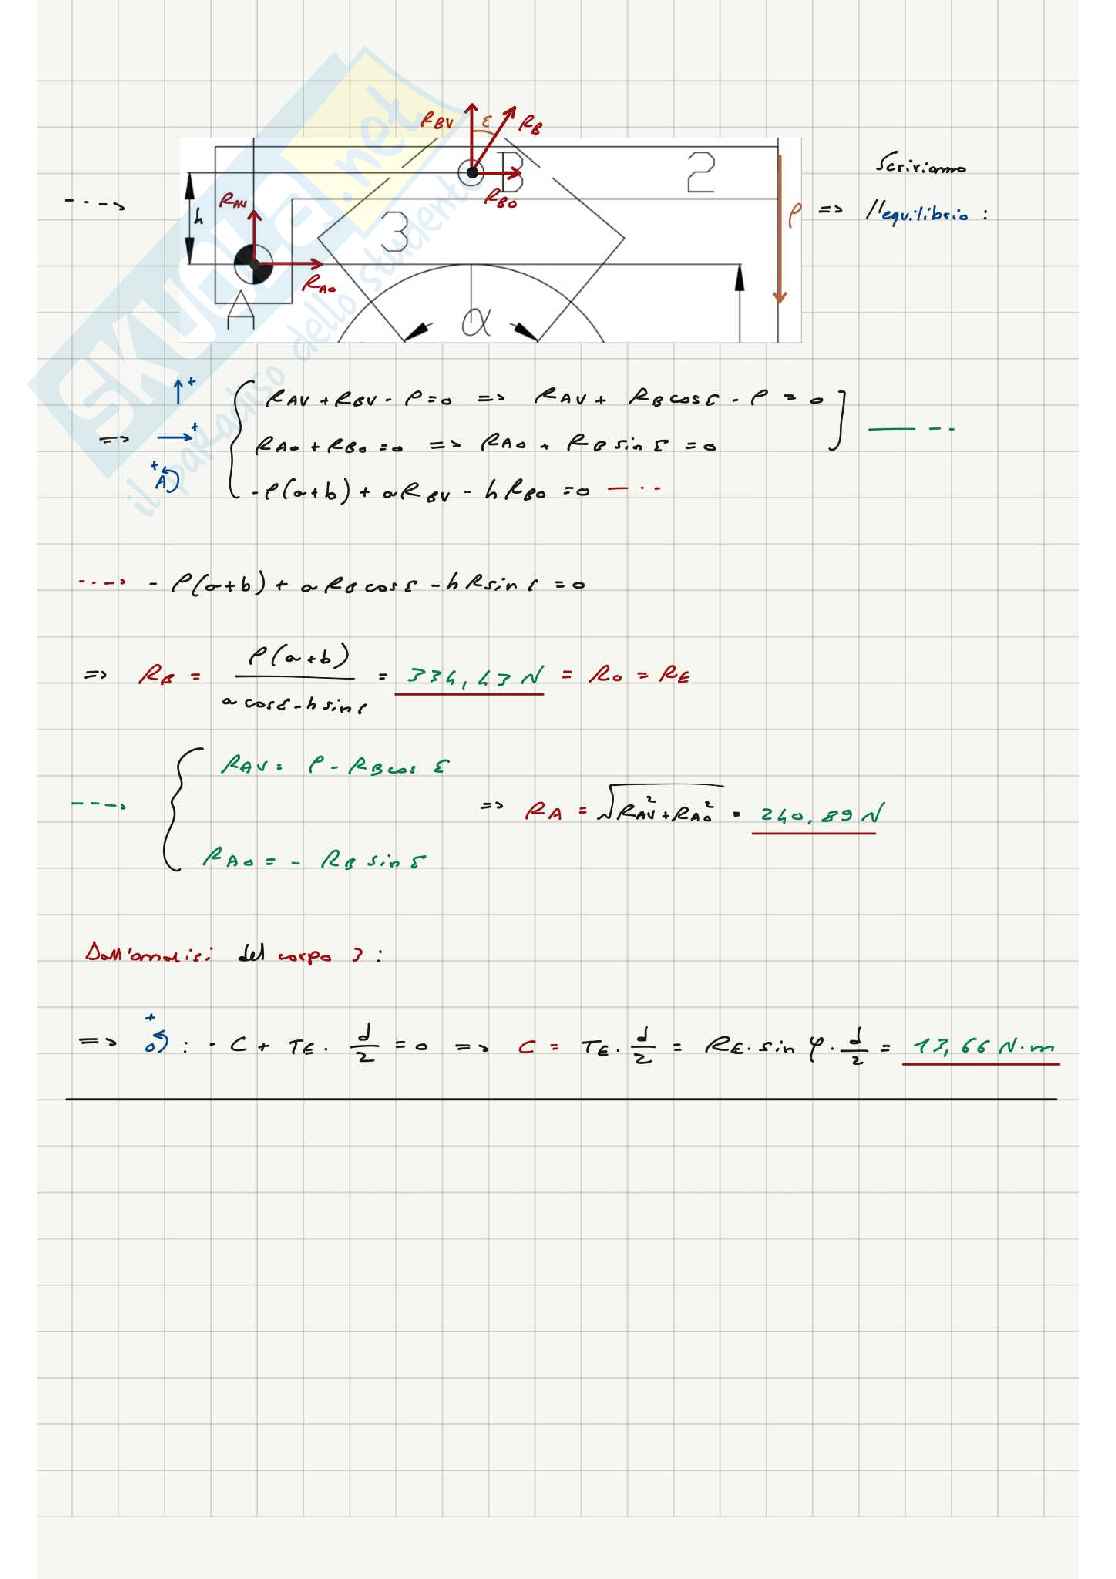 R_BV ε R_B
B 2
R_BO
Scriviamo
R_AV h 3 P => l'equilibrio :
R_AO
A α
SKUOLA.net
il paradiso dello studente
+ { R_AV + R_BV - P = 0 => R_AV + R_B cos ε - P = 0 ]
=> + R_AO + R_BO = 0 => R_AO + R_B sin ε = 0
+ A - P(a+b) + a R_BV - h R_BO = 0
- P(a+b) + a R_B cos ε - h R sin ε = 0
=> R_B = P(a+b) / a cos ε - h sin ε = 334,43 N = R_O = R_E
R_AV = P - R_B cos ε
=> R_A = √R_AV² + R_AO² = 240,89 N
R_AO = - R_B sin ε
Dall'analisi del corpo 3 :
=> + O : - C + T_E · d/2 = 0 => C = T_E · d/2 = R_E · sin φ · d/2 = 13,66 N·m